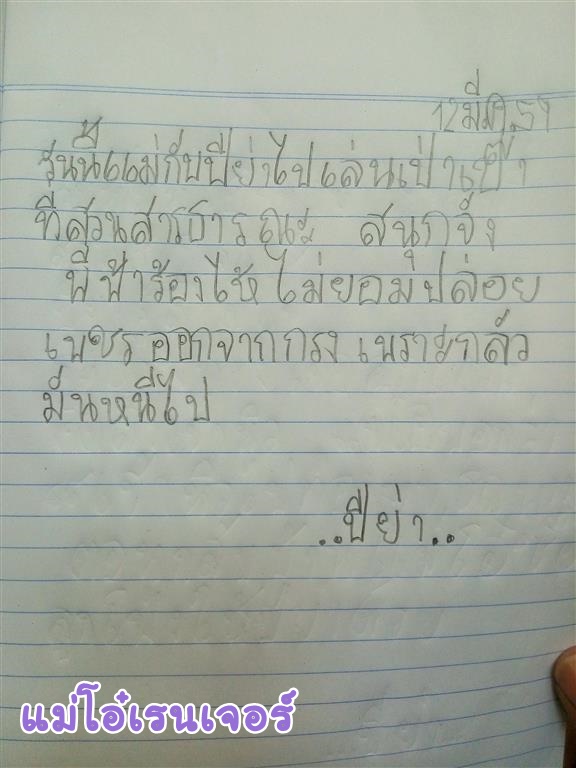 12 มีค. 59
วันนี้แม่กับปีย่าไปเล่นเป่าเป้า
ที่สวนสารธารณะ สนุกจัง
พี่ฟ้าร้องไห้ ไม่ยอมปล่อย
เพชร ออกจากกรง เพราะกลัว
มันหนีไป
..ปีย่า..
แม่โอ๋เรนเจอร์